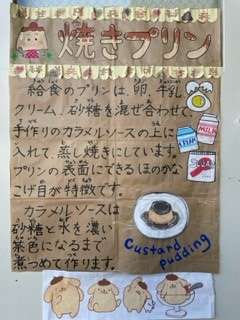 焼きプリン
給食のプリンは、卵、牛乳
クリーム、砂糖を混ぜ合わせて、
手作りのカラメルソースの上に
入れて、蒸し焼きにしています。
プリンの表面にできるほのかな
こげ目が特徴です。
カラメルソースは
砂糖と水を濃い
茶色になるまで
煮つめて作ります。
MILK
Custard
pudding